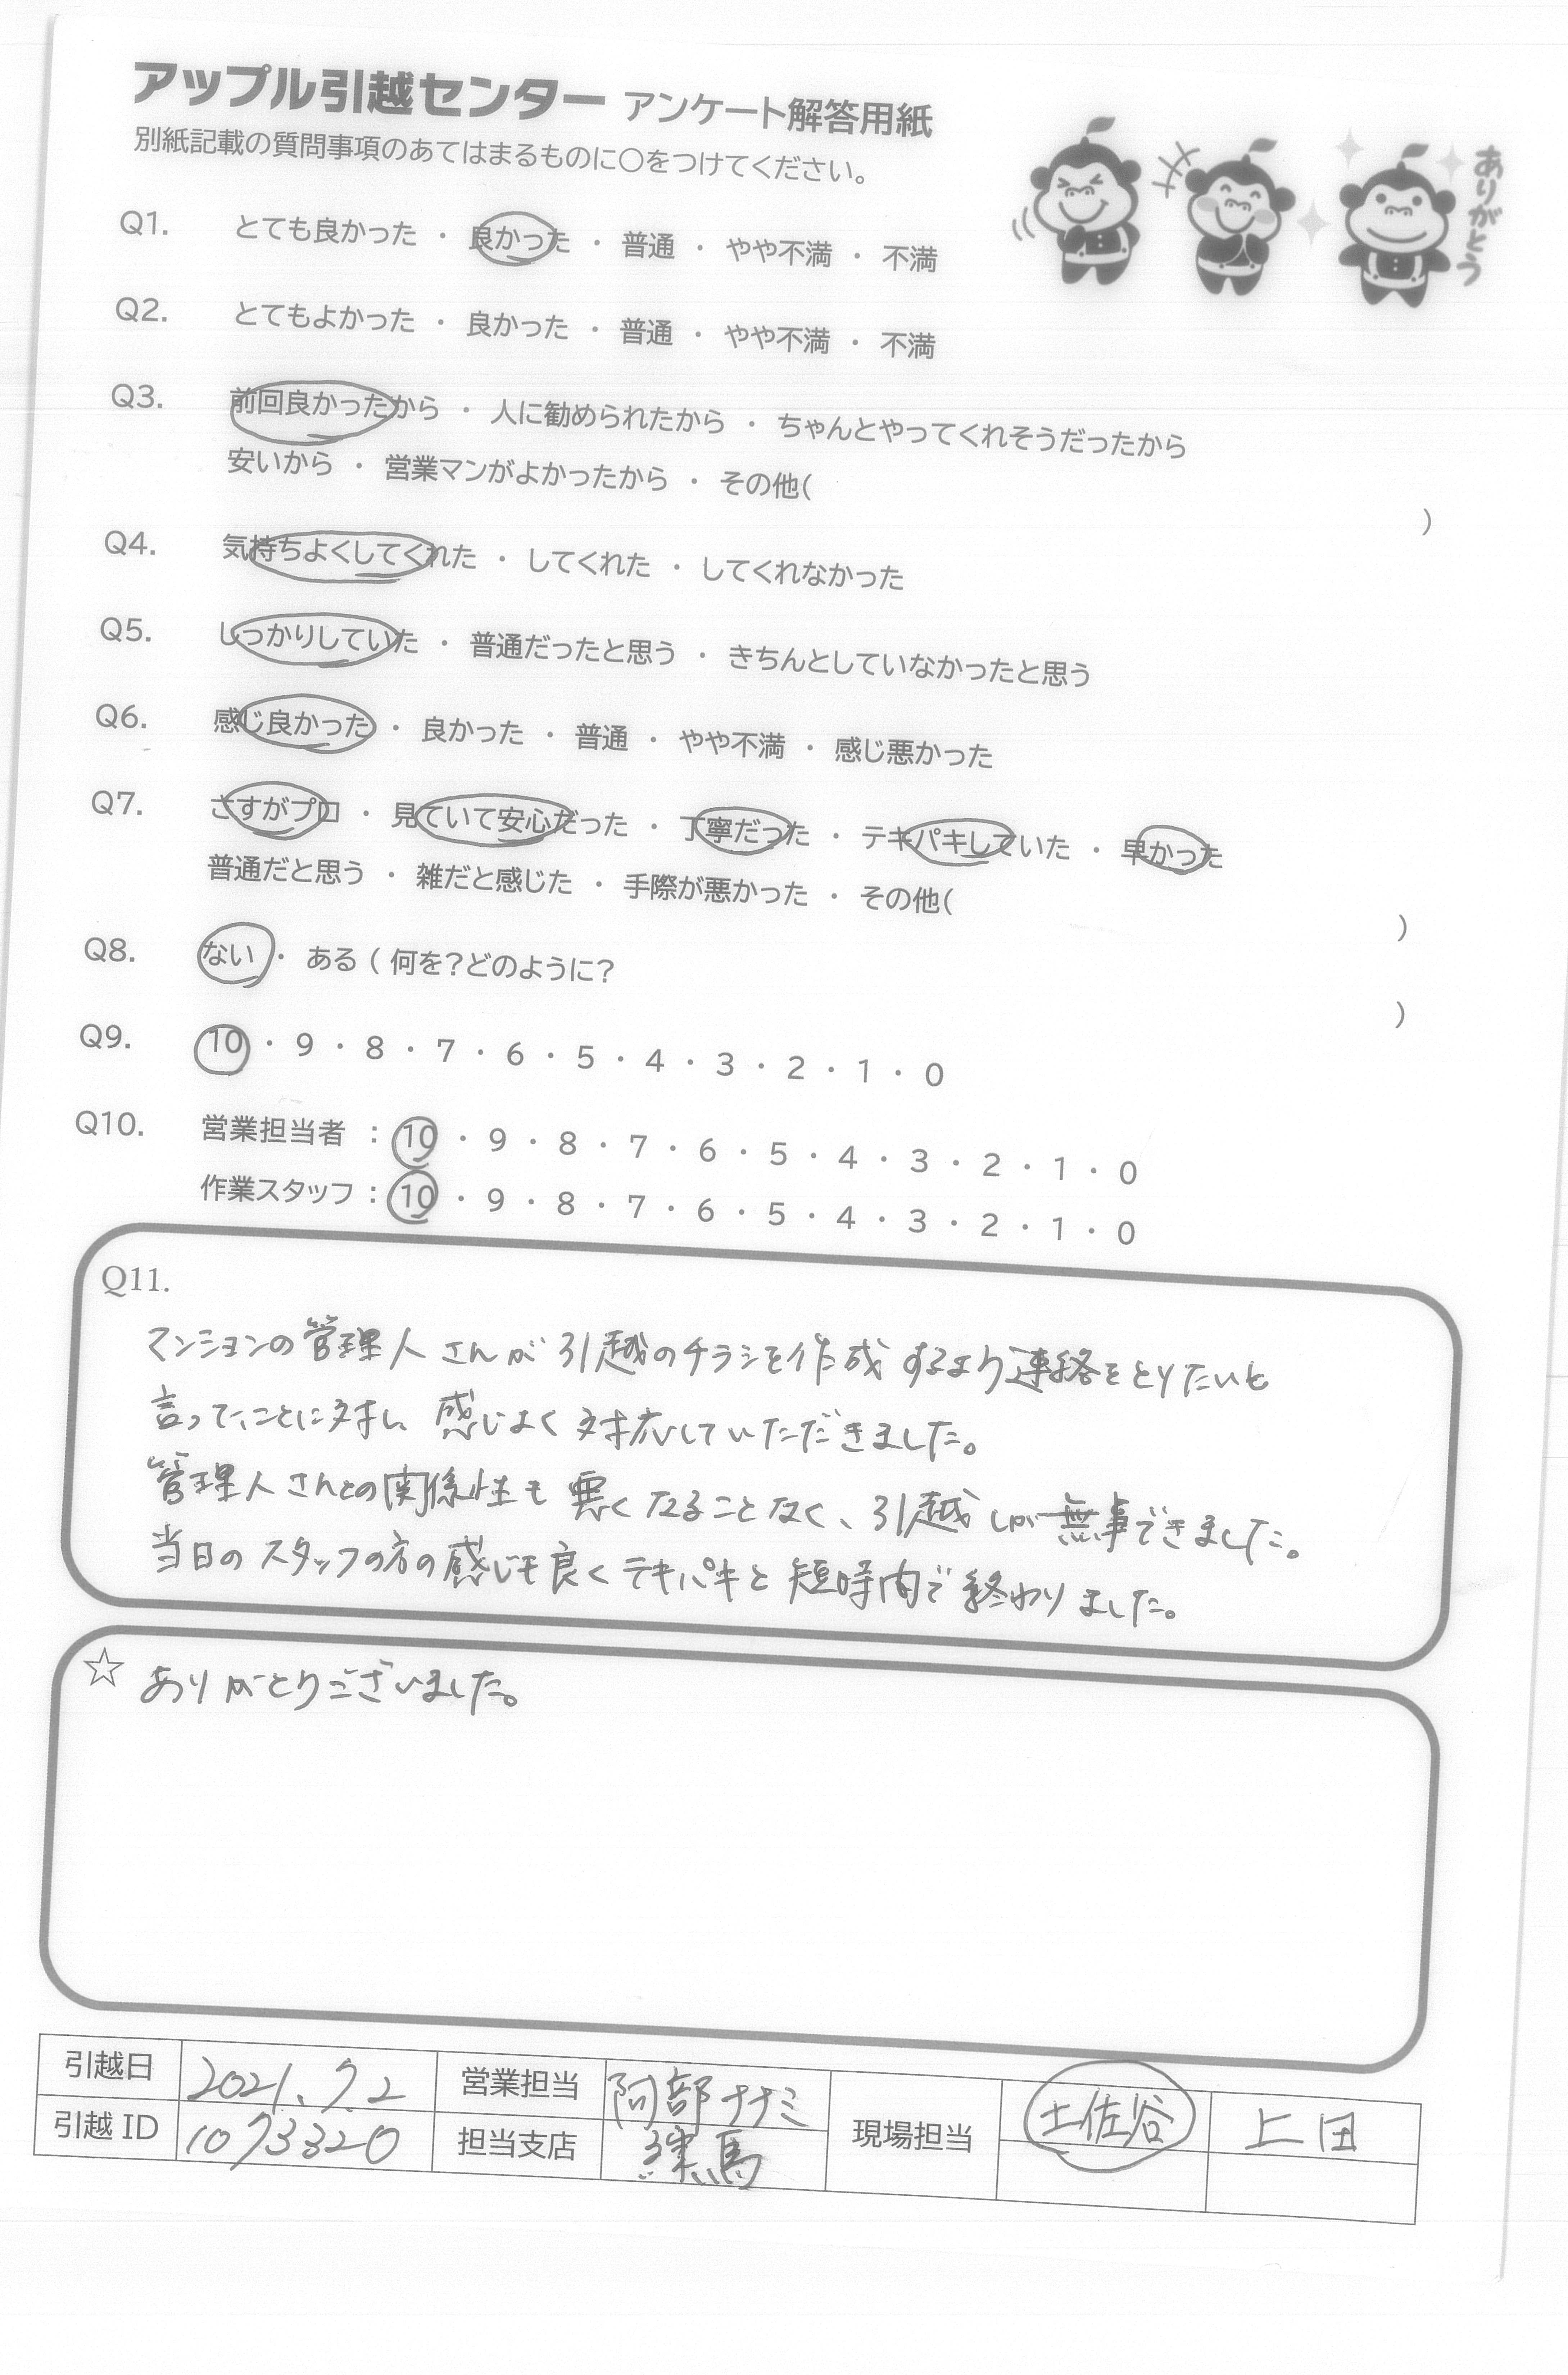 アップル引越センター アンケート解答用紙
別紙記載の質問事項のあてはまるものに○をつけてください。
ありがとう
Q1. とても良かった ・ 良かった ・ 普通 ・ やや不満 ・ 不満
Q2. とてもよかった ・ 良かった ・ 普通 ・ やや不満 ・ 不満
Q3. 前回良かったから ・ 人に勧められたから ・ ちゃんとやってくれそうだったから
安いから ・ 営業マンがよかったから ・ その他( )
Q4. 気持ちよくしてくれた ・ してくれた ・ してくれなかった
Q5. しっかりしていた ・ 普通だったと思う ・ きちんとしていなかったと思う
Q6. 感じ良かった ・ 良かった ・ 普通 ・ やや不満 ・ 感じ悪かった
Q7. さすがプロ ・ 見ていて安心だった ・ 丁寧だった ・ テキパキしていた ・ 早かった
普通だと思う ・ 雑だと感じた ・ 手際が悪かった ・ その他( )
Q8. ない ・ ある ( 何を?どのように? )
Q9. 10 ・ 9 ・ 8 ・ 7 ・ 6 ・ 5 ・ 4 ・ 3 ・ 2 ・ 1 ・ 0
Q10. 営業担当者 : 10 ・ 9 ・ 8 ・ 7 ・ 6 ・ 5 ・ 4 ・ 3 ・ 2 ・ 1 ・ 0
作業スタッフ : 10 ・ 9 ・ 8 ・ 7 ・ 6 ・ 5 ・ 4 ・ 3 ・ 2 ・ 1 ・ 0
Q11.
マンションの管理人さんが引越のチラシを作成するより連絡をとりたいと
言ってたことに対し、感じよく対応していただきました。
管理人さんとの関係性も悪くなることなく、引越しが無事できました。
当日のスタッフの方の感じも良くテキパキと短時間で終わりました。
☆ ありがとうございました。
引越日 2021.7.2 営業担当 阿部ナナミ 現場担当 土佐谷 上田
引越 ID 1073320 担当支店 練馬